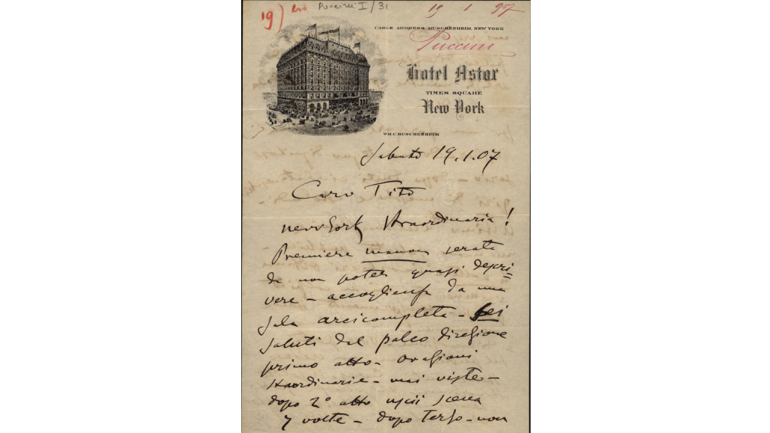 19) Puccini I/31
19 1 907
CABLE ADDRESS, MUSCHENHEIM, NEW YORK
Puccini
Hotel Astor
TIMES SQUARE
New York
WM. C. MUSCHENHEIM
Sabato 19.1.07
Caro Tito
New York straordinaria!
Premiere manon serata
da non potersi quasi descri-
vere - accoglienze da una
sala arcicompleta - Sei
saluti dal palco direzione
primo atto - ovazioni
straordinarie - mai viste -
dopo 2º atto uscii scena
7 volte - dopo terzo - non